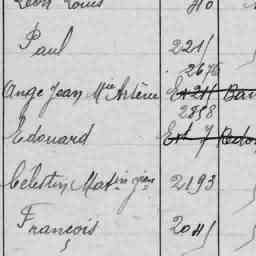 Léon Louis 40
Paul 2211
2676
Ange Jean Mie Arsène Ext 211 Bau
2858
Edouard Ext 7 Redo
Célestin Mathin Jean 2193
François 2041